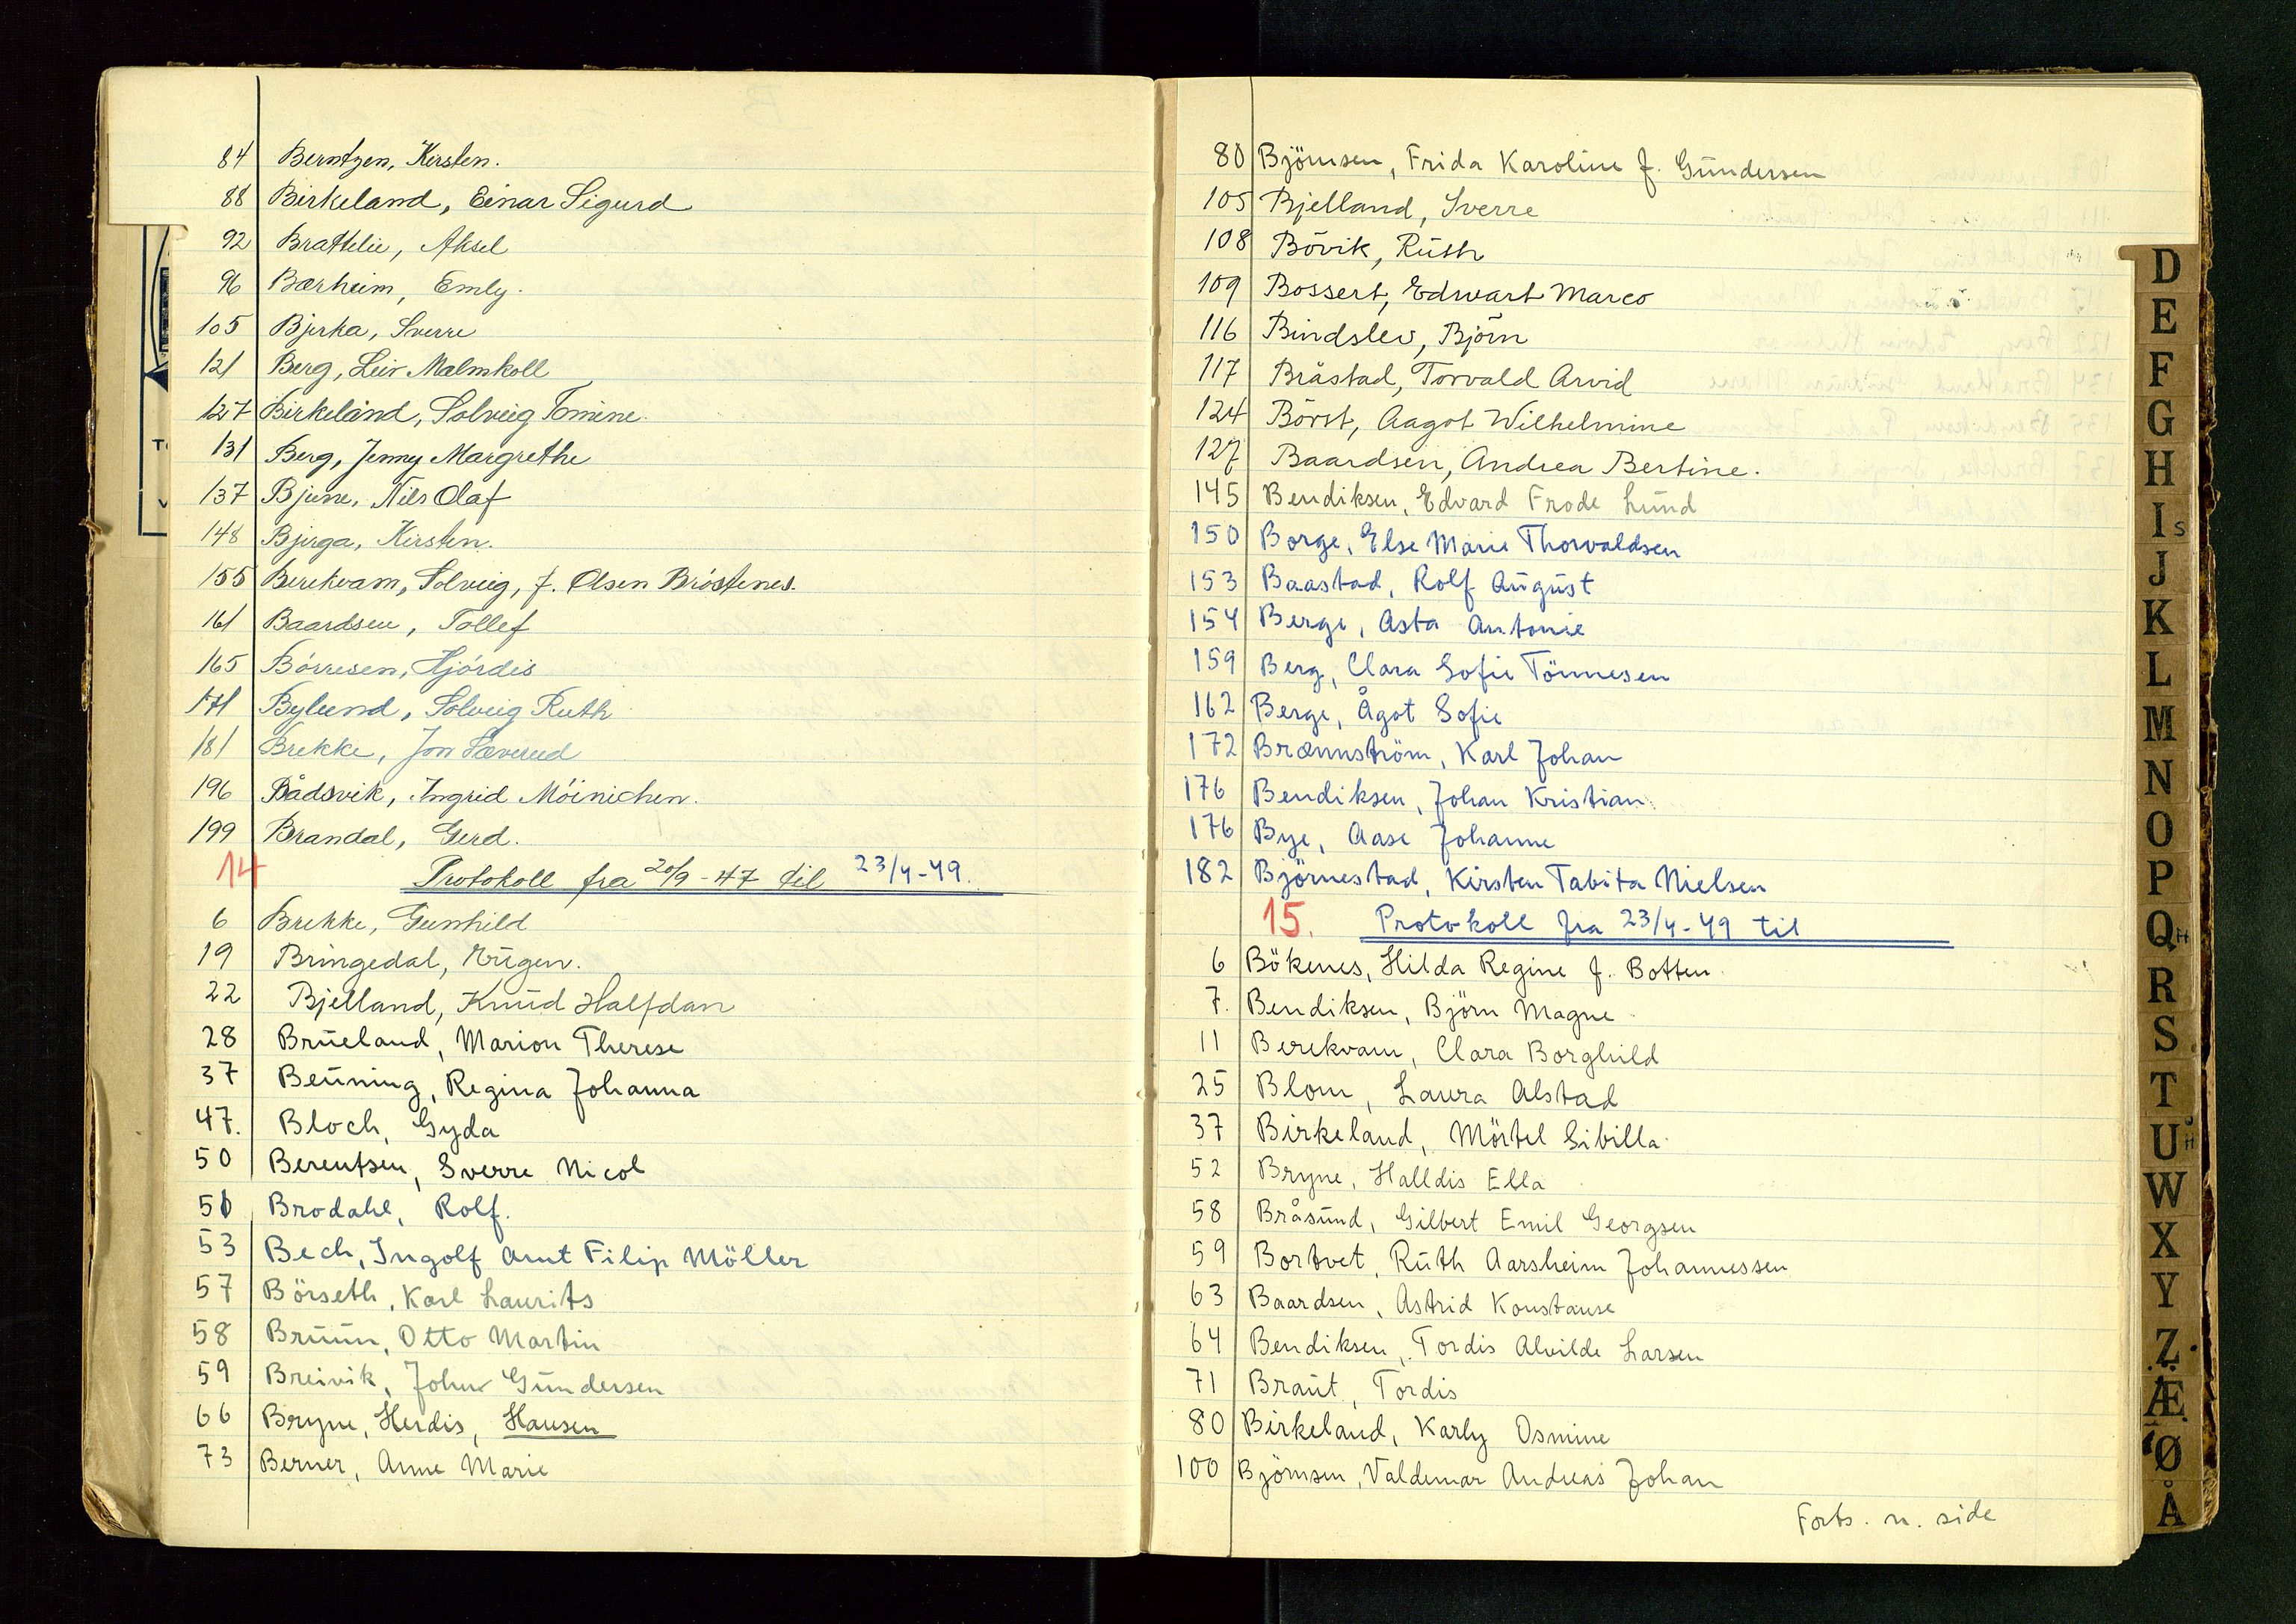 84 Berntzen, Kirsten.
88 Birkeland, Einar Sigurd
92 Brattelie, Aksel
96 Bærheim, Emly.
105 Bjerka, Sverre
121 Berg, Leiv Malmkoll
127 Birkeland, Solveig Tomine.
131 Berg, Jenny Margrethe
137 Bjune, Nils Olaf
148 Bjerga, Kirsten.
155 Berekvam, Solveig, f. Olsen Bröstenes.
161 Baardsen, Tollef
165 Börresen, Hjördis
171 Bylund, Solveig Ruth
181 Brekke, Jon Sæverud
196 Bådsvik, Ingrid Möinichen.
199 Brandal, Gerd.
14 Protokoll fra 20/9-47 til 23/4-49.
6 Brekke, Gunhild
19 Bringedal, Eugen.
22 Bjelland, Knud Halfdan
28 Brueland, Marion Therese
37 Beuning, Regina Johanna
47. Bloch, Gyda
50 Berentsen, Sverre Nicol
51 Brodahl, Rolf.
53 Bech, Ingolf Arnt Filip Möller
57 Börseth, Karl Laurits
58 Bruun, Otto Martin
59 Breivik, Johs Gundersen
66 Bryne, Herdis, Hansen
73 Berner, Anne Marie
80 Björnsen, Frida Karoline f. Gundersen
105 Bjelland, Sverre
108 Bövik, Ruth
109 Bossert, Edwart Marco
116 Bindslev, Björn
117 Bråstad, Torvald Arvid
124 Börst, Aagot Wilhelmine
127 Baardsen, Andrea Bertine.
145 Bendiksen, Edvard Frode Lund
150 Borge, Else Marie Thorvaldsen
153 Baastad, Rolf August
154 Berge, Asta Antonie
159 Berg, Clara Sofie Tönnesen
162 Berge, Ågot Sofie
172 Brænnström, Karl Johan
176 Bendiksen, Johan Kristian
176 Bye, Aase Johanne
182 Björnestad, Kirsten Tabita Nielsen
15. Protokoll fra 23/4-49 til
6 Bökenes, Hilda Regine f. Botten
7. Bendiksen, Björn Magne
11 Berekvam, Clara Borghild
25 Blom, Laura Alstad
37 Birkeland, Mörtel Sibilla
52 Bryne, Halldis Ella
58 Bråsund, Gilbert Emil Georgsen
59 Bortvet, Ruth Aarsheim Johannessen
63 Baardsen, Astrid Konstanse
64 Bendiksen, Tordis Alvilde Larsen
71 Braut, Tordis
80 Birkeland, Karly Osmine
100 Björnsen, Valdemar Andreas Johan
Forts. n. side
D
E
F
G
H
Is
J
K
L
M
N
O
P
Q
R
S
T
U
W
X
Y
Z
Æ
Ø
Å